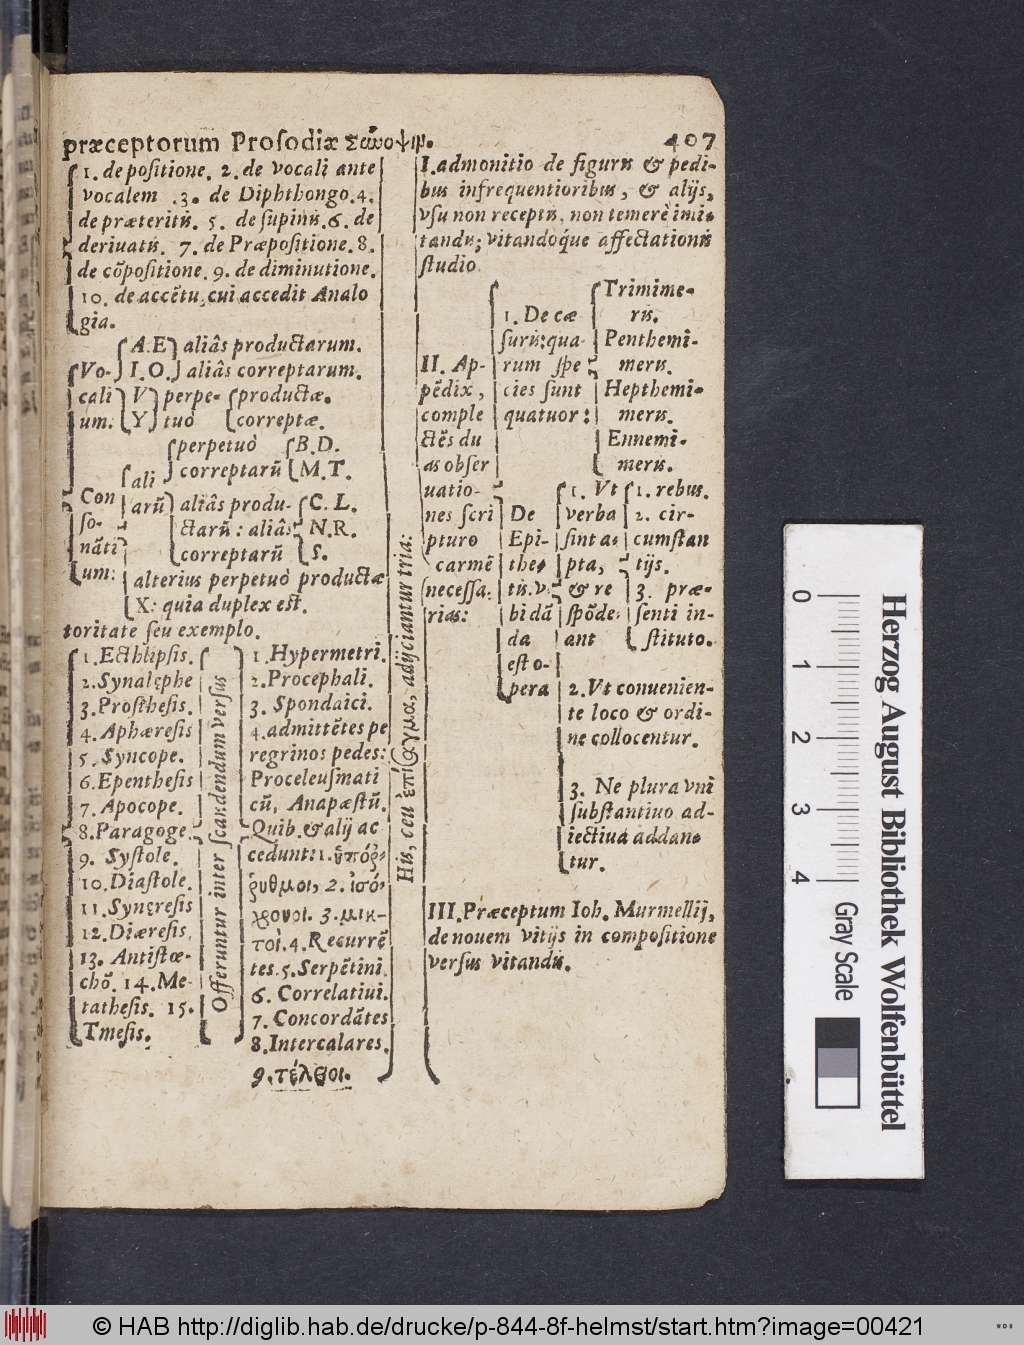 præceptorum Prosodiæ Σύνοψιμ. 407
1. de positione. 2. de vocali ante
vocalem .3. de Diphthongo.4.
de præteritis. 5. de supinis.6. de
deriuatis. 7. de Præpositione.8.
de cõpositione. 9. de diminutione.
10. de accẽtu, cui accedit Analo
gia.
A.E aliâs productarum.
Vo- I.O. aliâs correptarum.
cali V perpe- productæ.
um: Y tuò correptæ.
perpetuò B.D.
ali correptarũ M.T.
Con arũ aliâs produ- C. L.
so- ctarũ: aliâs N.R.
nãti correptarũ S.
um: alterius perpetuò productæ
X: quia duplex est.
toritate seu exemplo.
1. Ecthlipsis.
2. Synalęphe
3. Prosthesis.
4. Aphæresis
5. Syncope.
6. Epenthesis
7. Apocope.
8. Paragoge.
9. Systole.
10. Diastole.
11. Synęresis
12. Diæresis.
13. Antistœ-
chõ. 14. Me-
tathesis. 15.
Tmesis.
Offeruntur inter scandendum versus
1. Hypermetri.
2. Procephali.
3. Spondaici.
4. admittẽtes pe
regrinos pedes:
Proceleusmati
cũ, Anapæstũ.
Quib. & alij ac
cedunt: 1. ὑπόρ-
ρυθμοι, 2. ἰσό-
χρονοι. 3. μικ-
τοί. 4. Recurrẽ
tes. 5. Serpẽtini.
6. Correlatiui.
7. Concordãtes
8. Intercalares.
9. τέλεοι.
His, ceu ἐπίσαγμα, adijciantur tria:
I. admonitio de figuris & pedi-
bus infrequentioribus, & alijs,
vsu non receptis, non temerè imi-
tandis; vitandoq́ue affectationis
studio
II. Ap-
pẽdix,
comple
ctẽs du
as obser
uatio-
nes scri
pturo
carmẽ
necessa-
rias:
1. De cæ
suris: qua-
rum spe
cies sunt
quatuor:
Trimime-
ris.
Penthemi-
meris.
Hepthemi-
meris.
Ennemi-
meris.
De
Epi-
the-
tis. v-
bi dã
da
est o-
pera
1. Vt
verba
sint a-
pta,
& re
spõde-
ant
1. rebus.
2. cir-
cumstan
tijs.
3. præ-
senti in-
stituto.
2. Vt conuenien-
te loco & ordi-
ne collocentur.
3. Ne plura vni
substantiuo ad-
iectiua addan-
tur.
III. Præceptum Ioh. Murmellij,
de nouem vitijs in compositione
versus vitandis.
0 1 2 3 4
Gray Scale
Herzog August Bibliothek Wolfenbüttel
© HAB http://diglib.hab.de/drucke/p-844-8f-helmst/start.htm?image=00421